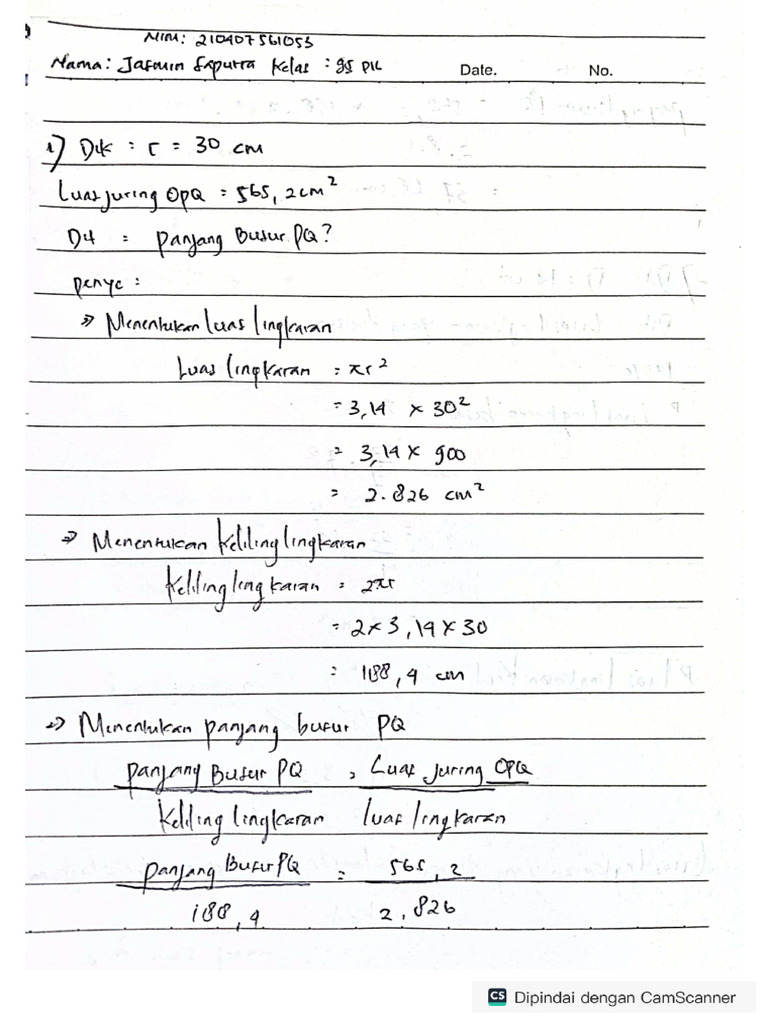 NIM: 210407561053
Nama: Jasmin Saputra Kelas : gs PIL Date. No.
1) Dik : r = 30 cm
Luas juring OPQ = 565,2 cm²
Dit = Panjang Busur PQ?
penye :
⇒ Menentukan Luas lingkaran
Luas lingkaran = πr²
= 3,14 × 30²
= 3,14 × 900
= 2.826 cm²
⇒ Menentukan Keliling lingkaran
Keliling lingkaran = 2πr
= 2 × 3,14 × 30
= 188,4 cm
⇒ Menentukan panjang busur PQ
panjang Busur PQ = Luas Juring OPQ
Keliling lingkaran luas lingkaran
panjang Busur PQ = 565,2
188,4 2.826
CS Dipindai dengan CamScanner